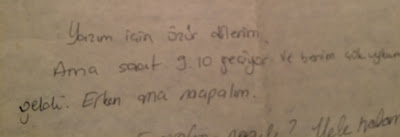 Yazım için özür dilerim.
Ama saat 9.10 geçiyor ve benim çok uykum
geldi. Erken ama napalım.